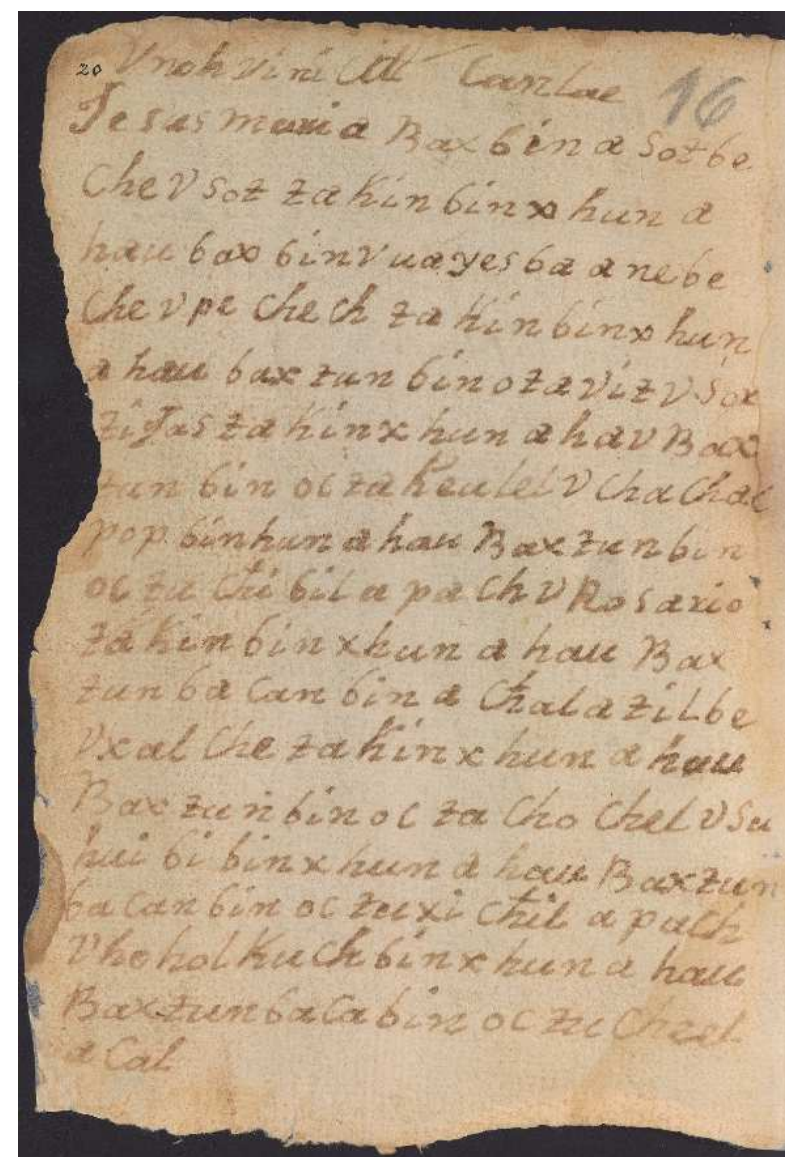 20 Vnoh vinicil Canlae 16
Jesus maria Bax bin a sot be
Che V sot ta kin bin x hun a
hau bax bin V ua yes ba a ne be
Che V pe Chech ta kin bin x hun
a hau bax tun bin ota Vit V sox
ti Jas ta kin x hun a haV Bax
tun bin oc ta keulel V ChaChac
pop bin hun a hau Bax tun bin
oc tu chi bil a pach V Rosario
ta kin bin x hun a hau Bax
tun ba Can bin a Chal a tilbe
Vxal Che ta kin x hun a hau
Bax tun bin oc ta ChoChel V su
hui bi bin x hun a hau Bax tun
ba can bin oc tu xi Chil a pach
V hohol Kuch bin x hun a hau
Bax tun ba Ca bin oc tu Cheel
a Cal